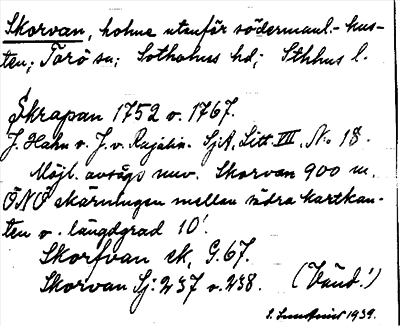 Skorvan, holme utanför södermanl.-kus-
ten; Torö sn; Sotholms hd; Sthlms l.
Skrapan 1752 o. 1767.
J. Hahn o. J. v. Rajalin. SjA, Litt. VII, No 18.
Möjl. avsågs nuv. Skorvan 900 m.
ÖNÖ skärningen mellan södra kartkan-
ten o. längdgrad 10'.
Skorfvan sk, G. 67.
Skorvan Sj: 237 o. 238. (Vänd!)
1939.